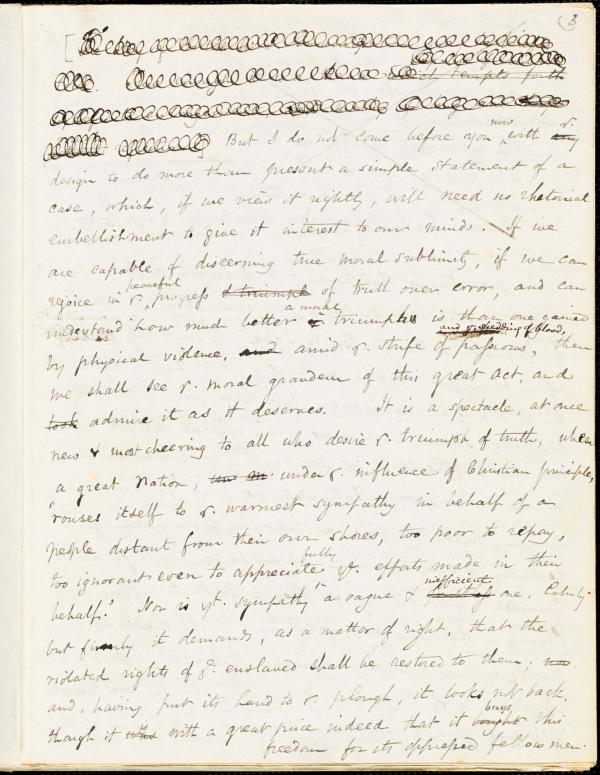 3
But I do not come before you now with any r.
design to do more than present a simple statement of a
case, which, if we view it rightly, will need no rhetorical
embellishment to give it interest to our minds. If we
are capable of discerning true moral sublimity, if we can
rejoice in r. peaceful progress & triumph of truth over error, and can
understand how much better a moral triumph is than one gained
by physical violence, and amid r. strife of passions, and shedding of blood, then
we shall see r. moral grandeur of this great act, and
look admire it as it deserves. It is a spectacle, at once
new & most cheering to all who desire r. triumph of truth, when
a great nation, under r. influence of Christian principle,
rouses itself to r. warmest sympathy in behalf of a
people distant from their own shores, too poor to repay,
too ignorant even to appreciate fully yt. efforts made in their
behalf. Nor is yt. sympathy a vague & inefficient one. Calmly
but firmly it demands, as a matter of right, that the
violated rights of ye. enslaved shall be restored to them;
and, having put its hand to r. plough, it looks not back,
though it is with a great price indeed that it buys bought this
freedom for its oppressed fellow men.